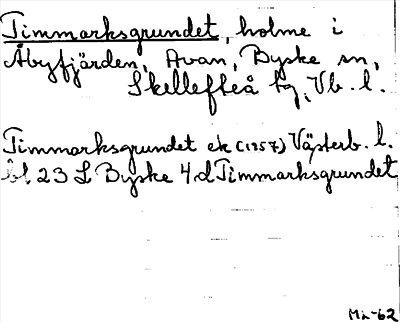 Timmarksgrundet, holme i
Åbyfjärden, Avan, Byske sn,
Skellefteå tg, Vb. l.
Timmarksgrundet ek (1957) Västerb. l.
bl 23 L Byske 4 d Timmarksgrundet
Mh-62